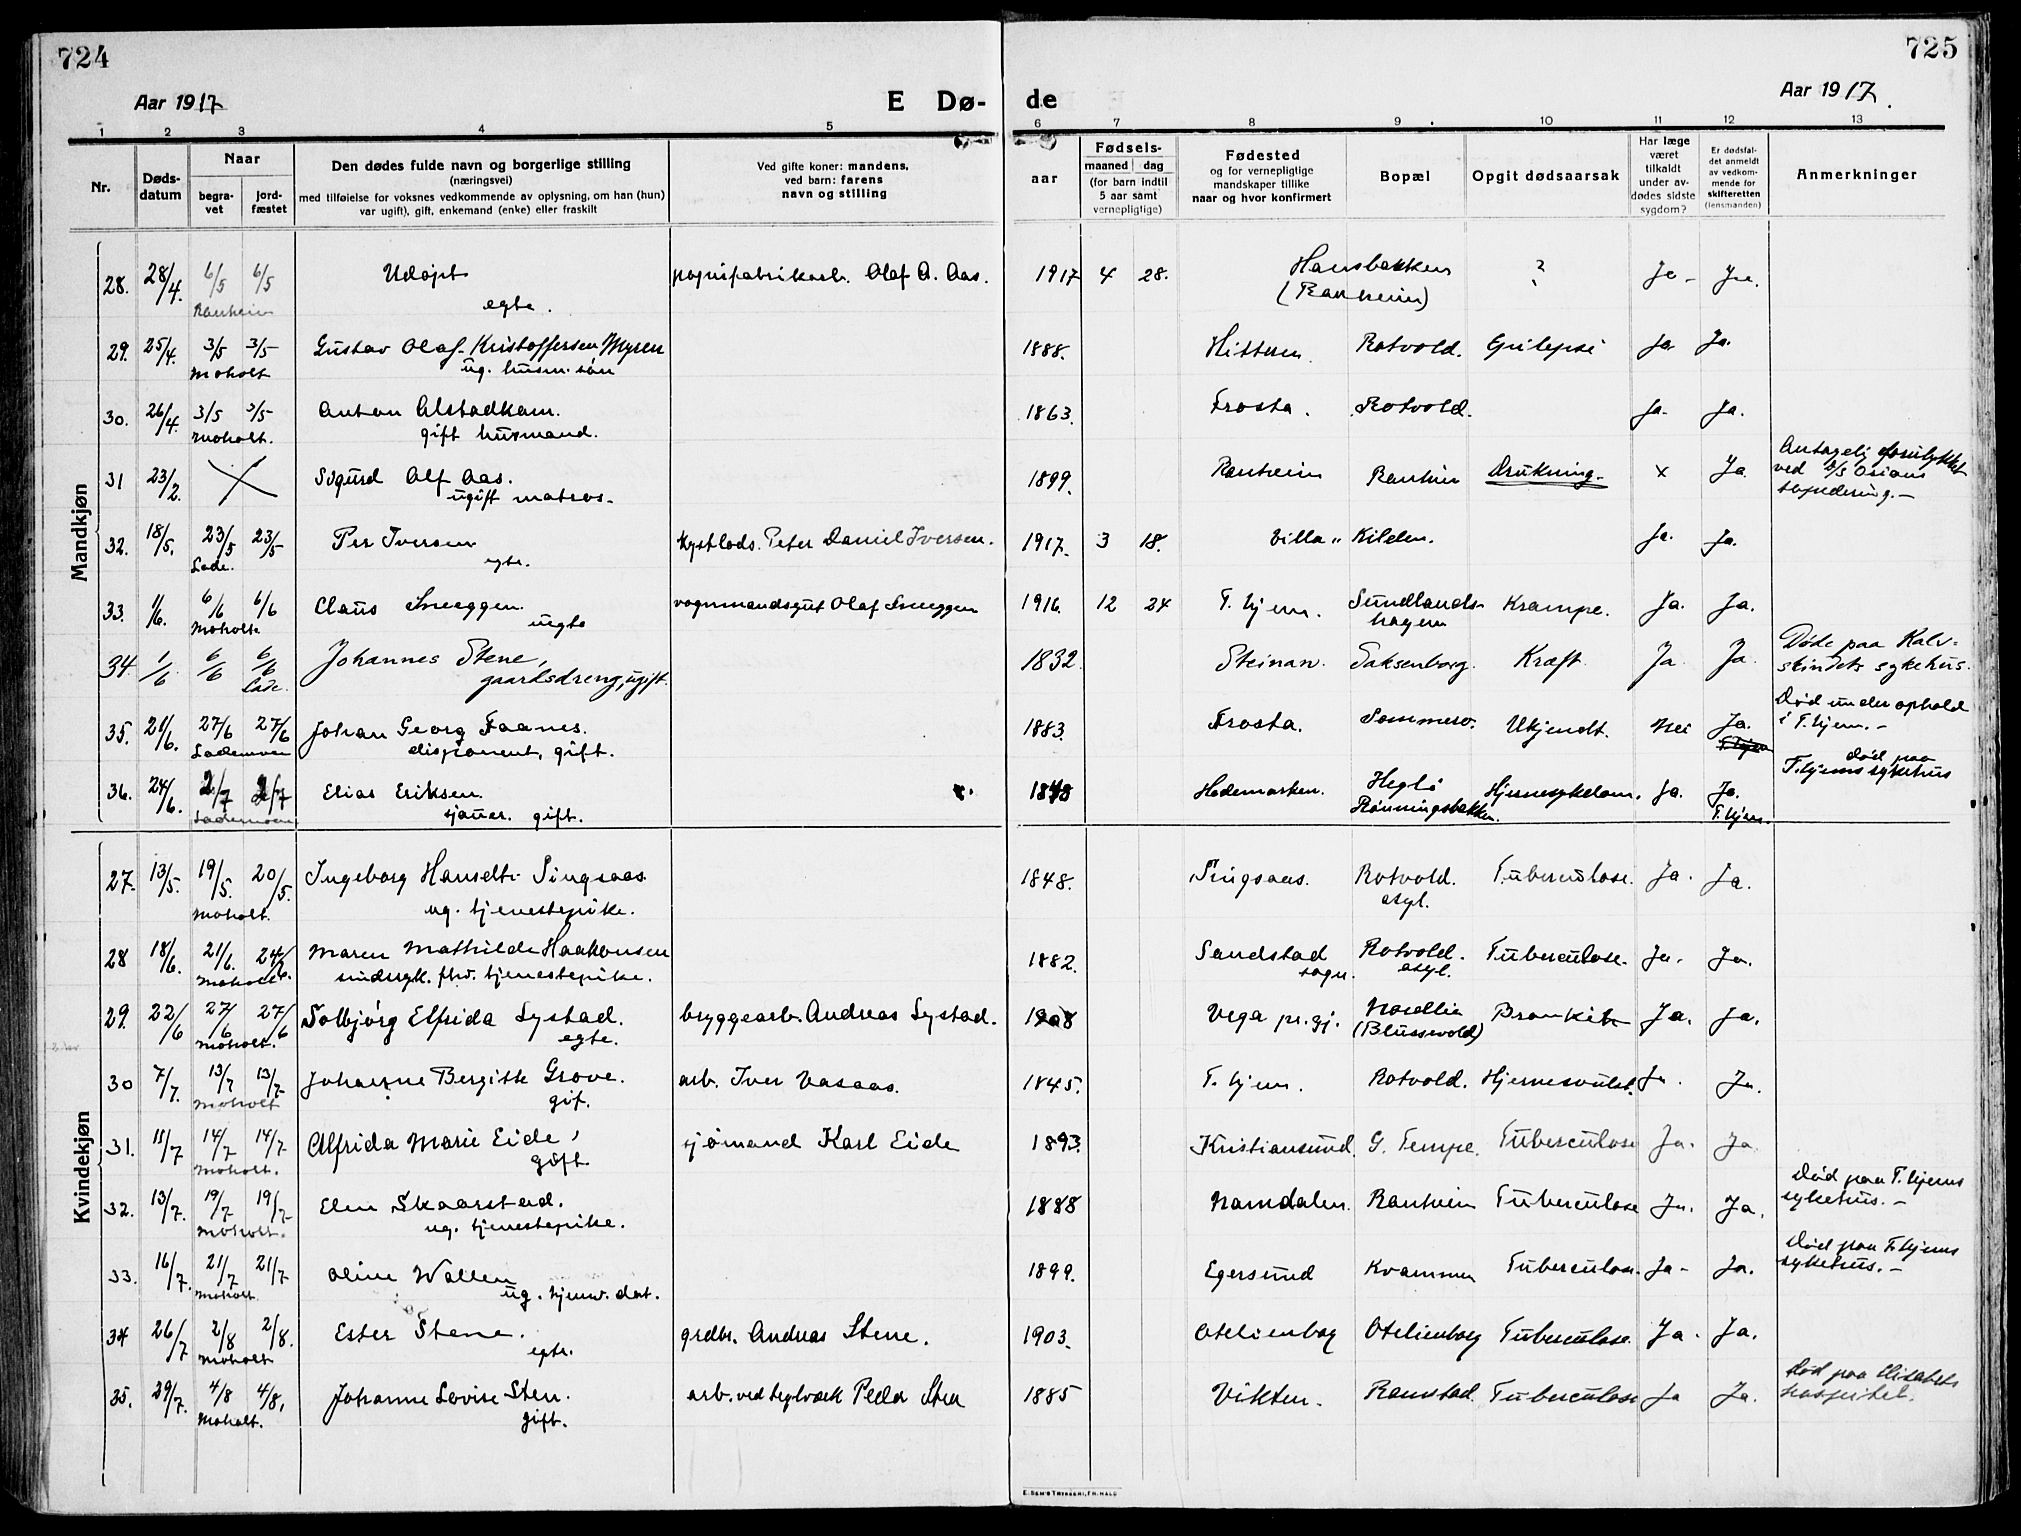 724
725
Aar 1917
E Dø-
de
Aar 1917.
1 2 3 4 5 6 7 8 9 10 11 12 13
Nr.
Døds-
datum
Naar
begra-
vet
jord-
fæstet
Den dødes fulde navn og borgerlige stilling
(næringsvei)
med tilføielse for voksnes vedkommende av oplysning, om han (hun)
var ugift), gift, enkemand (enke) eller fraskilt
Ved gifte koner: mandens,
ved barn: farens
navn og stilling
aar
Fødsels-
maaned dag
(for barn indtil
5 aar samt
vernepligtige)
Fødested
og for vernepligtige
mandskaper tillike
naar og hvor konfirmert
Bopæl
Opgit dødsaarsak
Har læge
været
tilkaldt
under av-
dødes sidste
sygdom?
Er dødsfal-
det anmeldt
av vedkom-
mende for
skifteretten
(lensmanden)
Anmerkninger
Mandkjøn
28. 28/4. 6/5 6/5 Udøpt papirfabrikarb. Olaf A. Aas. 1917 4 28. Hansbakken ? Ja - Ja.
Ranheim egte. (Ranheim)
29. 25/4. 3/5 3/5 Gustav Olaf Kristoffersen Myren 1888. Hitteren Rotvold. Epilepsi Ja. Ja.
Moholt ug. husm. søn
30. 26/4. 3/5 3/5 Anton Alstadkam. 1863. Frosta. Rotvold. Ja. Ja.
Moholt. gift husmand.
31 23/2. Sigurd Alf Aas. 1899. Ranheim Ranheim Drukning. x Ja Antagelig forulykket
ugift matros. ved D/S
torpedering. -
32. 18/5. 23/5 23/5 Per Iversen kystlods. Peter Daniel Iversen. 1917. 3 18. Villa " Kilden. Ja. Ja.
Lade. egte.
33. 1/6. 6/6 6/6 Claus Sneeggen. vognmandsgut Olaf Sneeggen 1916. 12 24 T.hjem. Sundlands- Krampe. Ja. Ja.
Moholt. uegte hagen
34. 1/6 6/6 6/6 Johannes Stene, 1832. Steinan. Saksenborg. Kræft. Ja. Ja. Døde paa Kalv-
Lade. gaardsdreng, ugift. skindets sykehus.
35. 21/6. 27/6 27/6 Johan Georg Faanes. 1883. Frosta. Sommero. Ukjendt. Nei Ja. Død under ophold
Lademoen disponent, gift. T.hjem i T.hjem. -
36. 24/6. 2/7 2/7 Elias Eriksen. 1848 Hedemarken. Heglø Hjernesykdom. Ja. Ja. død paa
Lademoen sjauer. gift. Rønningsbakken. T.hjem. T.hjems sykehus
Kvindekjøn
27. 13/5. 19/5. 20/5. Ingeborg Hansdtr. Singsaas 1848. Singsaas. Rotvold. Tuberculose. Ja. Ja.
Moholt. ug. tjenestepike. asyl.
28 18/6. 21/6. 24/6. Maren Mathilde Haakonsen 1882. Sandstad Rotvold. Tuberculose. Ja. Ja.
Moholt. sindssyk. fhv. tjenestepike. sogn. asyl.
29. 22/6 27/6 27/6 Solbjørg Elfrida Systad. bryggearb. Andreas Systad. 1908 Vega pr.gj. Nardllia Bronkit Ja. Ja.
Moholt. egte. (Blussuvold)
30 7/7. 13/7 13/7 Johanne Bergitte Grove. arb. Iver Vasaas. 1845. T.hjem. Rotvold. Hjernesvulst. Ja. Ja.
Moholt gift.
31. 11/7 14/7 14/7 Alfrida Marie Eide, sjømand Karl Eide 1893. Kristiansund. G. Tempe. Tuberculose Ja. Ja
Moholt. gift
32. 13/7. 19/7 19/7 Elen Skaarstad. 1888 Namdalen. Ranheim Tuberculose Ja. Ja. Død paa T.hjems
Moholt. ug. tjenestepike. sykehus. -
33. 16/7. 21/7 21/7 Oline Wallen 1899. Egersund Kvammen Tuberculose. Ja - Ja. Død paa T.hjems
Moholt ug. tjenv. dat. sykehus. -
34 26/7 2/8 2/8. Ester Stene. grdbr. Andreas Stene. 1903. Otelienborg Otelienborg Tuberculose. Ja. Ja.
Moholt egte.
35. 29/7. 4/8 4/8. Johanne Lovise Sten. arb. ved teglværk Peder Sten 1885 Vikten. Ranstad. Tuberculose Ja Ja. Død paa Elisabeth
Moholt. gift. hospitel.
E. SEM'S TRYKKERI, FR. HALD